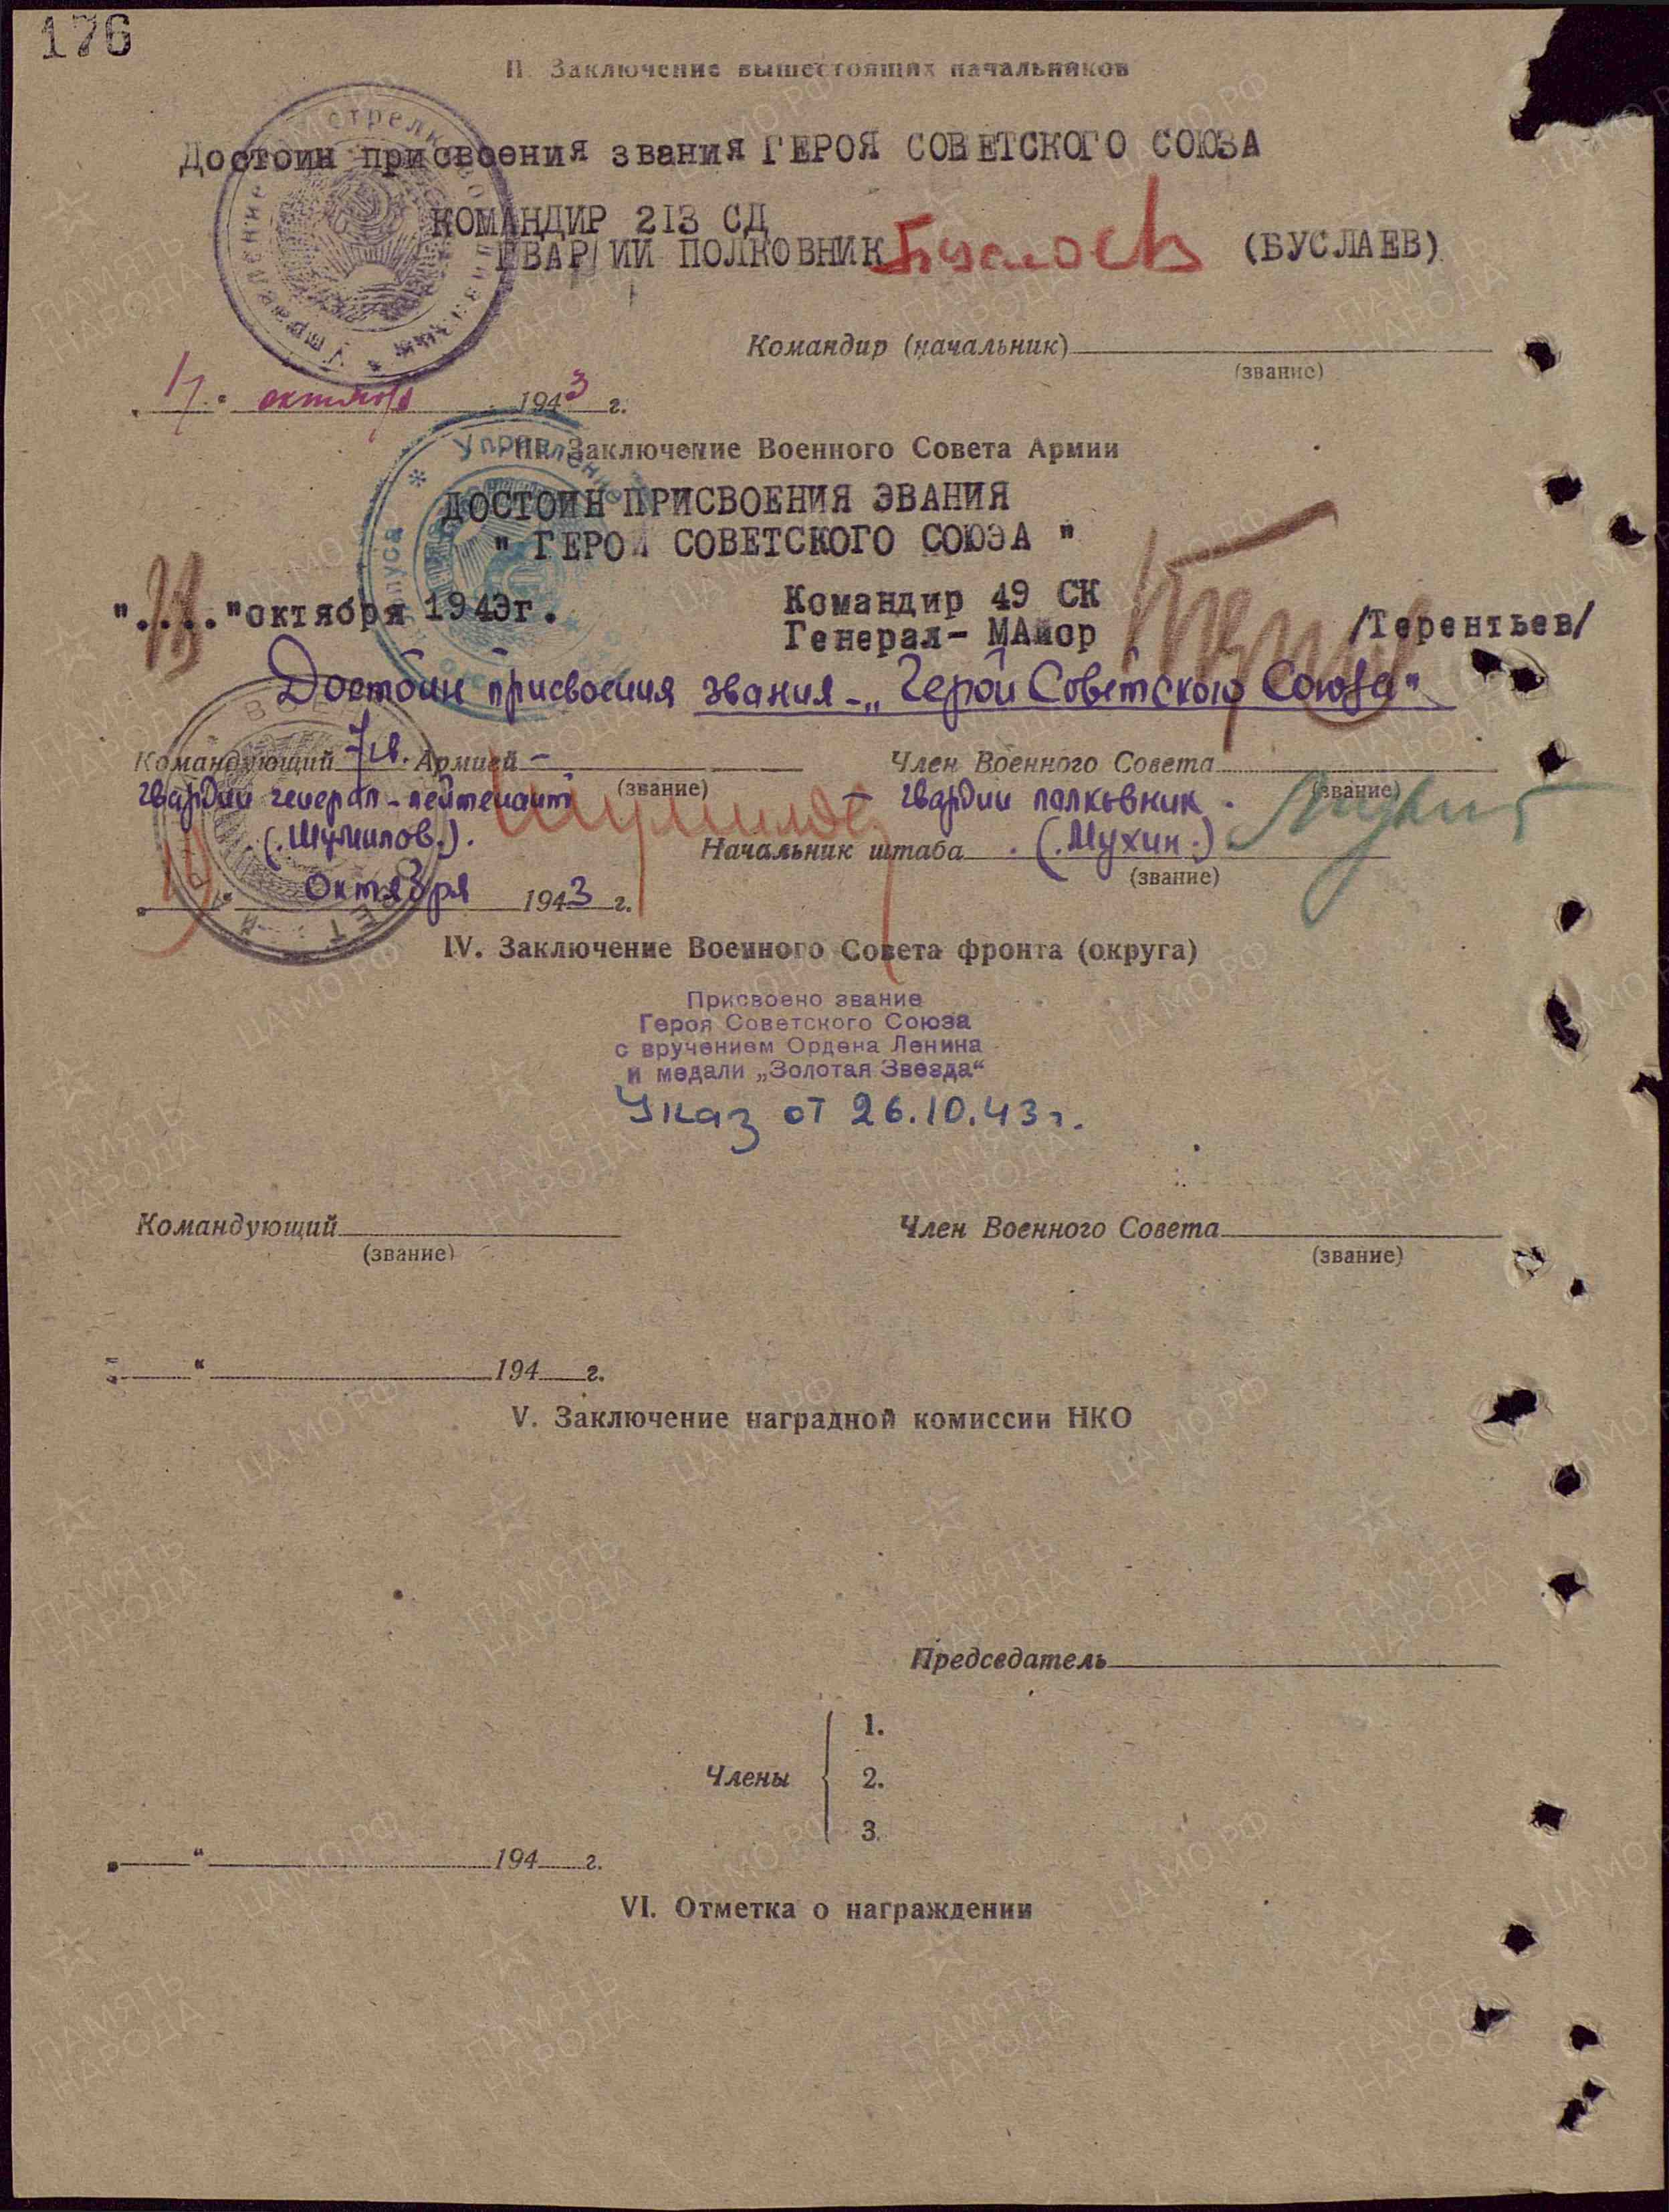 176
II. Заключение вышестоящих начальников
Достоин присвоения звания ГЕРОЯ СОВЕТСКОГО СОЮЗА
КОМАНДИР 213 СД
ГВАРДИИ ПОЛКОВНИК Буслаев (БУСЛАЕВ)
Командир (начальник)
(звание)
октября 1943 г.
III. Заключение Военного Совета Армии
ДОСТОИН ПРИСВОЕНИЯ ЗВАНИЯ
" ГЕРОЯ СОВЕТСКОГО СОЮЗА "
"...." октября 1943г.
Командир 49 СК
Генерал- МАйор /Терентьев/
Достоин присвоения звания - „Герой Советского Союза"
Командующий 7 гв. Армией -
Член Военного Совета
(звание)
(звание)
гвардии генерал-лейтенант
- гвардии полковник.
(Шумилов.). Шумилов
Начальник штаба (.Мухин.)
(звание)
октября 1943 г.
IV. Заключение Военного Совета фронта (округа)
Присвоено звание
Героя Советского Союза
с вручением Ордена Ленина
и медали „Золотая Звезда“
Указ от 26.10.43г.
Командующий
Член Военного Совета
(звание)
(звание)
„ “ 194 г.
V. Заключение наградной комиссии НКО
Председатель
Члены
1.
2.
3.
„ “ 194 г.
VI. Отметка о награждении
ПАМЯТЬ НАРОДА
ЦА МО РФ